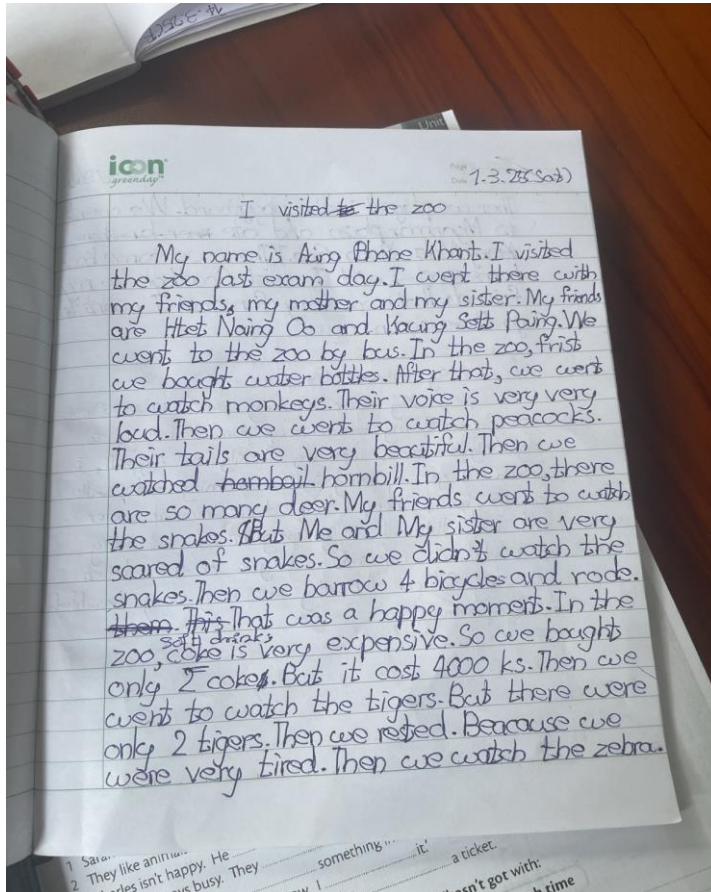 icon
greenday
1.3.25(Sat)
I visited to the zoo
My name is Aing Phone Khant. I visited
the zoo last exam day. I went there with
my friends, my mother and my sister. My friends
are Htet Naing Oo and Kaung Sett Paing. We
went to the zoo by bus. In the zoo, frist
we bought water bottles. After that, we went
to watch monkeys. Their voice is very very
loud. Then we went to watch peacocks.
Their tails are very beautiful. Then we
watched hornbill. In the zoo, there
are so many deer. My friends went to watch
the snakes. But Me and My sister are very
scared of snakes. So we didn't watch the
snakes. Then we barrow 4 bicycles and rode.
them. This That was a happy moment. In the
soft drinks
zoo, coke is very expensive. So we bought
only 2 coke. But it cost 4000 ks. Then we
went to watch the tigers. But there were
only 2 tigers. Then we rested. Beacause we
were very tired. Then we watch the zebra.
Unit
1 Sara
2 They like anim
isn't happy. He
something
it.
busy. They
a ticket.
I
sn't got with:
time